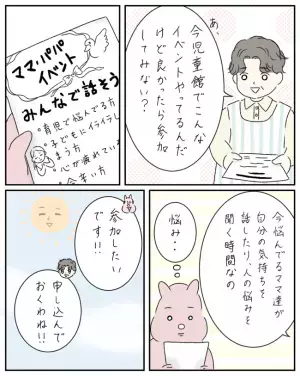 あ、
今児童館でこんな
イベントやってるんだ
けど良かったら参加
してみない？
ママ・パパ
イベント
みんなで話そう
・育児で悩んでる方
・子どもにイライラし
まう方
・心が疲れてい
今辛い方
今悩んでるママ達が
自分の気持ちを
話したり、人の悩みを
聞く時間なの
悩み‥
参加したい
です!!
申し込んで
おくわね!!